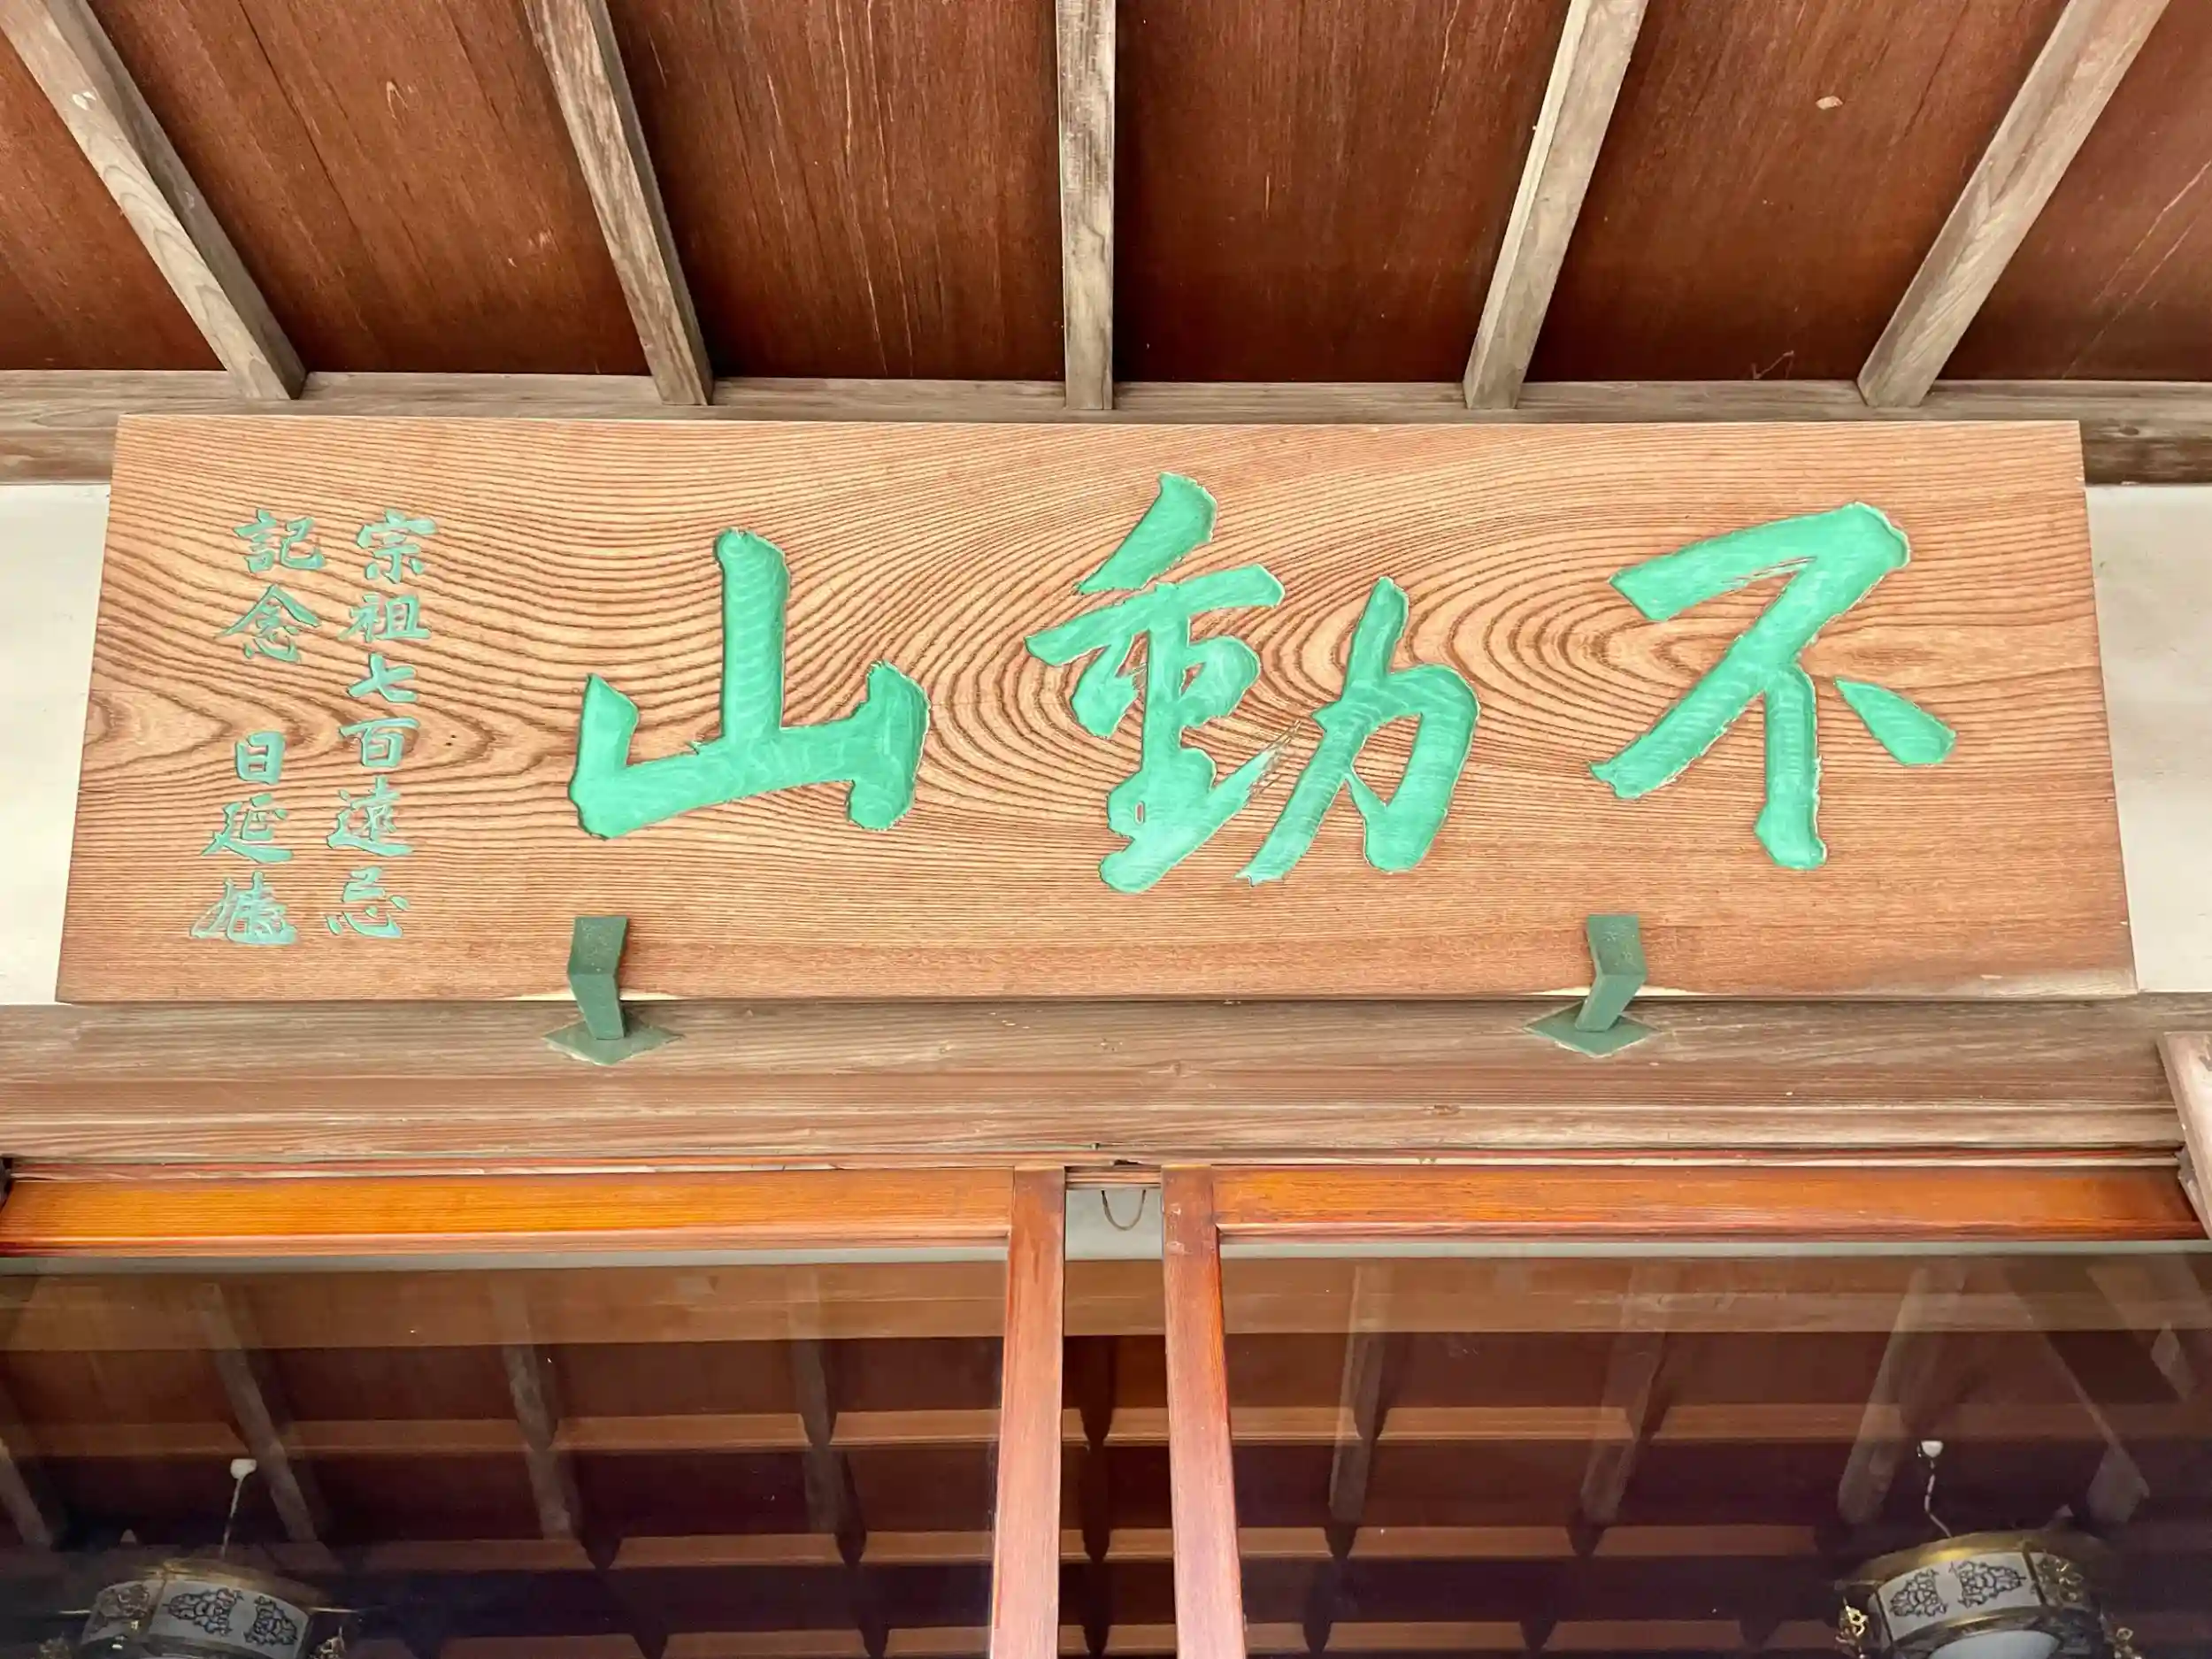 不動山
宗祖七百遠忌
記念 日延